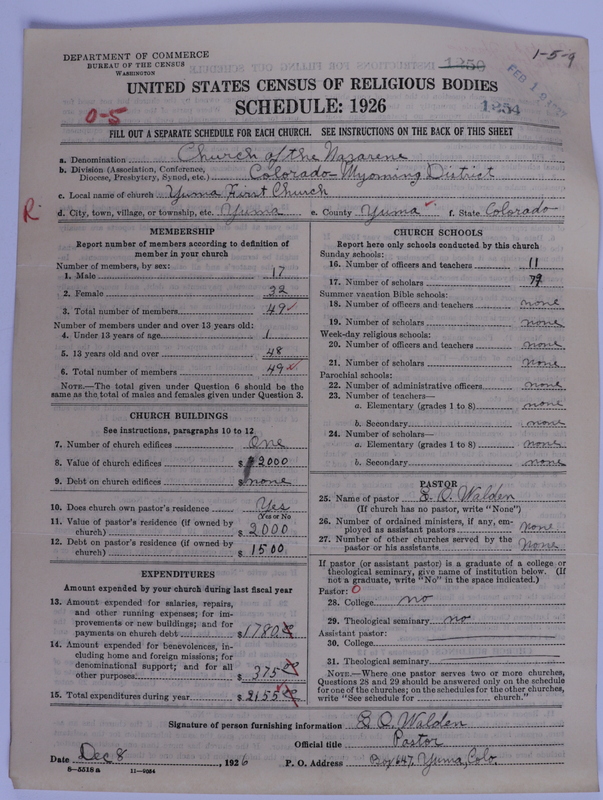 1-5-9
1250
FEB 19 1927
DEPARTMENT OF COMMERCE
BUREAU OF THE CENSUS
WASHINGTON
UNITED STATES CENSUS OF RELIGIOUS BODIES
SCHEDULE: 1926
0-5
1254
FILL OUT A SEPARATE SCHEDULE FOR EACH CHURCH. SEE INSTRUCTIONS ON THE BACK OF THIS SHEET
a. Denomination Church of the Nazarene
b. Division (Association, Conference,
Diocese, Presbytery, Synod, etc.) Colorado-Wyoming District
c. Local name of church Yuma First Church
R
d. City, town, village, or township, etc. Yuma e. County Yuma f. State Colorado
MEMBERSHIP
Report number of members according to definition of
member in your church
Number of members, by sex:
1. Male 17
2. Female 32
3. Total number of members 49
Number of members under and over 13 years old:
4. Under 13 years of age 1
5. 13 years old and over 48
6. Total number of members 49
NOTE.—The total given under Question 6 should be
same as the total of males and females given under Question 3.
CHURCH BUILDINGS
See instructions, paragraphs 10 to 12
7. Number of church edifices One
8. Value of church edifices $ 2000
9. Debt on church edifices $ none
10. Does church own pastor's residence Yes
(Yes or No)
11. Value of pastor's residence (if owned by
church) $ 2000
12. Debt on pastor's residence (if owned by
church) $ 1500
EXPENDITURES
Amount expended by your church during last fiscal year
13. Amount expended for salaries, repairs,
and other running expenses; for im-
provements or new buildings; and for
payments on church debt $ 1780
14. Amount expended for benevolences, in-
cluding home and foreign missions; for
denominational support; and for all
other purposes $ 375
15. Total expenditures during year $ 2155
CHURCH SCHOOLS
Report here only schools conducted by this church
Sunday schools:
16. Number of officers and teachers 11
17. Number of scholars 79
Summer vacation Bible schools:
18. Number of officers and teachers none
19. Number of scholars none
Week-day religious schools:
20. Number of officers and teachers none
21. Number of scholars none
Parochial schools:
22. Number of administrative officers none
23. Number of teachers—
a. Elementary (grades 1 to 8) none
b. Secondary none
24. Number of scholars—
a. Elementary (grades 1 to 8) none
b. Secondary none
PASTOR
25. Name of pastor Walden
(If church has no pastor, write "None")
26. Number of ordained ministers, if any, em-
ployed as assistant pastors none
27. Number of other churches served by the
pastor or his assistants None
If pastor (or assistant pastor) is a graduate of a college or
theological seminary, give name of institution below. (If
not a graduate, write "No" in the space indicated.)
Pastor: 0
28. College no
29. Theological seminary no
Assistant pastor:
30. College
31. Theological seminary
NOTE.—Where one pastor serves two or more churches,
Questions 28 and 29 should be answered only on the schedule
for one of the churches; on the schedules for the other churches,
write "See schedule for church."
Signature of person furnishing information Walden
Official title Pastor
Date Dec 8, 1926 P. O. Address Box 647, Yuma, Colo.
8-5518 a 11-9054